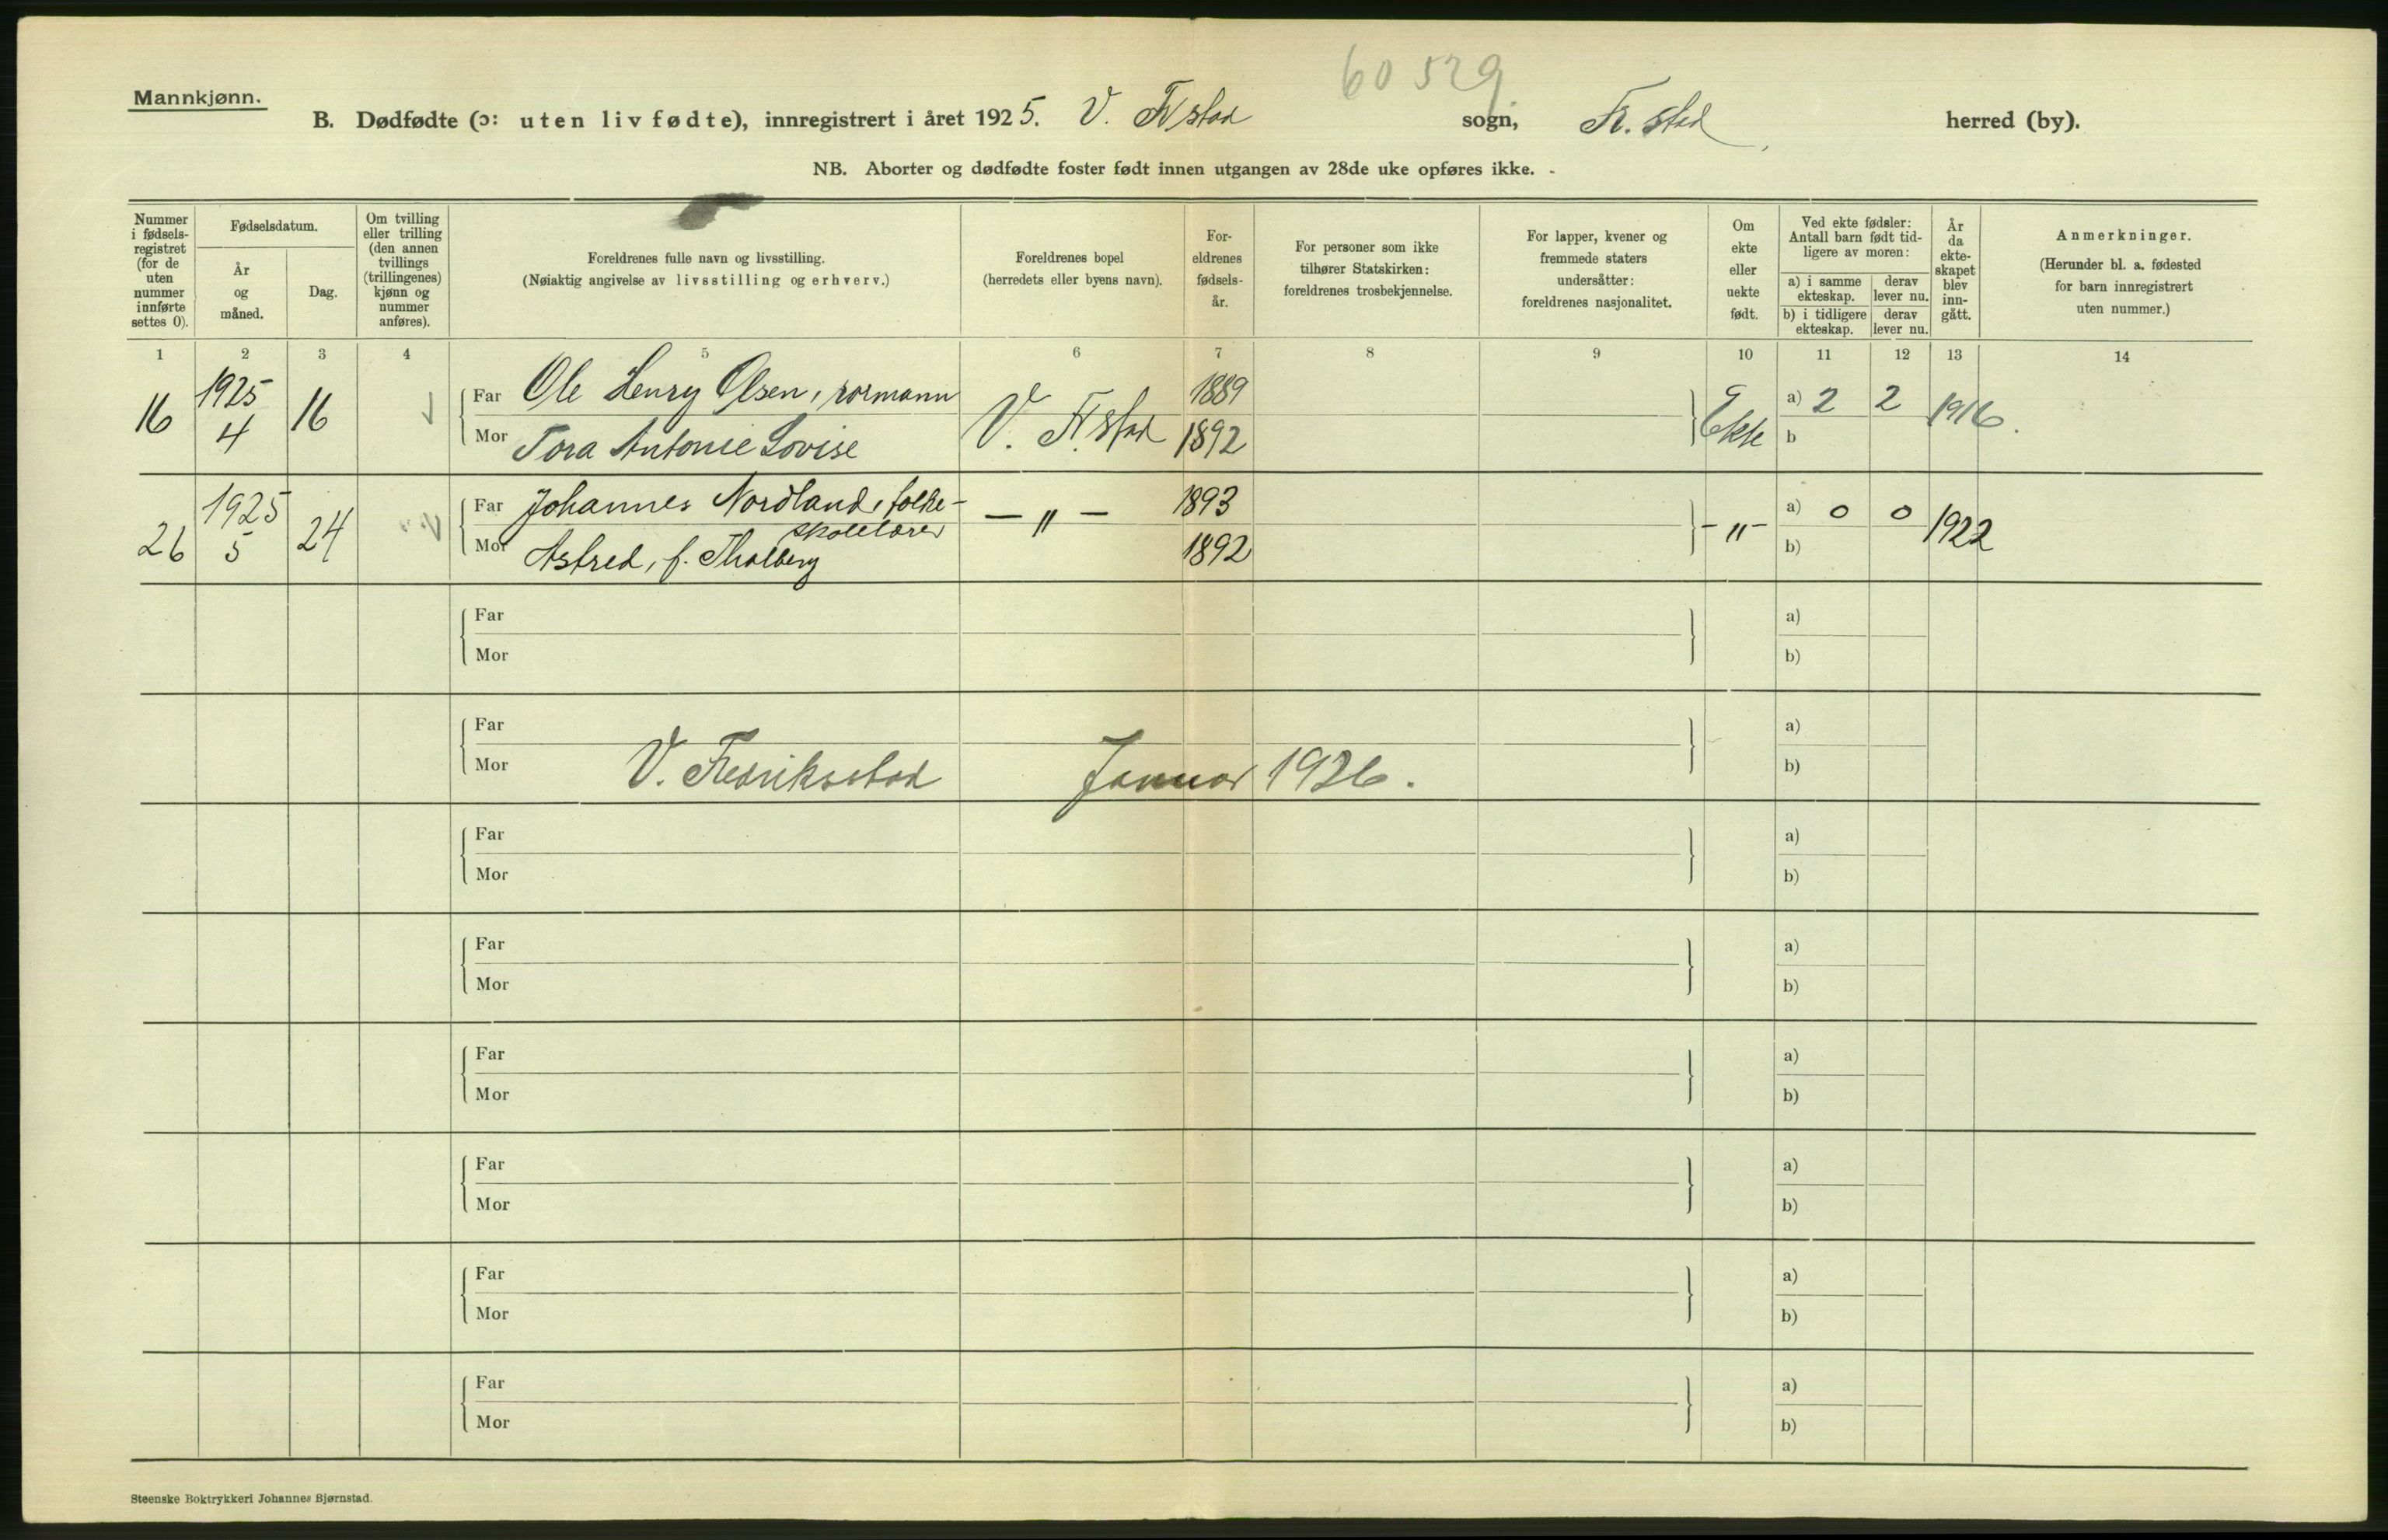 60529
Mannkjønn.
B. Dødfødte (ɔ: uten liv fødte), innregistrert i året 1925. V. Frstad sogn, Fr. stad herred (by).
NB. Aborter og dødfødte foster født innen utgangen av 28de uke opføres ikke.
Nummer i fødsels-registret (for de uten nummer innførte settes 0).
Fødselsdatum.
År og måned.
Dag.
Om tvilling eller trilling (den annen tvillings (trillingenes) kjønn og nummer anføres).
Foreldrenes fulle navn og livsstilling.
(Nøiaktig angivelse av livsstilling og erhverv.)
Foreldrenes bopel
(herredets eller byens navn).
For-eldrenes fødsels-år.
For personer som ikke tilhører Statskirken: foreldrenes trosbekjennelse.
For lapper, kvener og fremmede staters undersåtter: foreldrenes nasjonalitet.
Om ekte eller uekte født.
Ved ekte fødsler: Antall barn født tid-ligere av moren:
a) i samme ekteskap. derav lever nu.
b) i tidligere ekteskap. derav lever nu.
År da ekte-skapet blev inn-gått.
Anmerkninger.
(Herunder bl. a. fødested for barn innregistrert uten nummer.)
1 2 3 4 5 6 7 8 9 10 11 12 13 14
16 1925 4 16 Far Ole Henry Olsen, rormann V. Frstad 1889 Ekte a) 2 2 1916.
Mor Tora Antonie Lovise 1892 b
26 1925 5 24 Far Johannes Nordland, folke- — „ — 1893 - „ - a) 0 0 1922
skolelærer
Mor Astred, f. Tholberg 1892 b)
Far a)
Mor b)
Far a)
Mor V. Fredriksstad Januar 1926. b)
Far a)
Mor b)
Far a)
Mor b)
Far a)
Mor b)
Far a)
Mor b)
Far a)
Mor b)
Far a)
Mor b)
Steenske Boktrykkeri Johannes Bjørnstad.